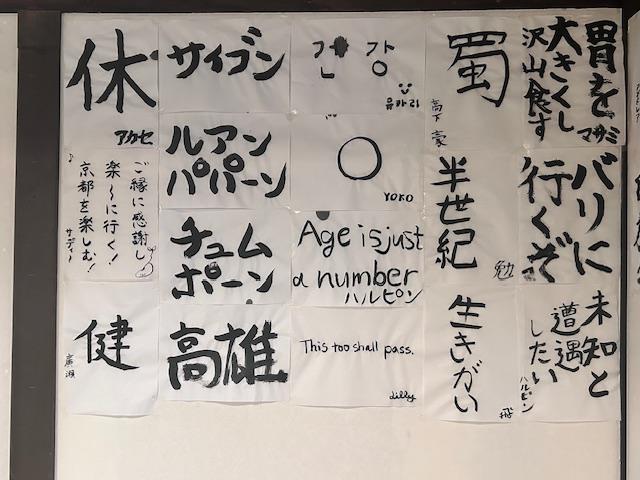 休
アカセ
ご縁に感謝し
楽〜に行く!
京都を楽しむ!
サディー
健
廣瀬
サイゴン
ルアン
パパーン
チュム
ポーン
高雄
건강
유카리
○
YOKO
Age is just
a number
ハルピン
This too shall pass.
Lilly
蜀
高下 豪
半世紀
勉
生きがい
飛
胃を
大きくし
沢山食す
マサミ
バリに
行くぞ
未知と
遭遇
したい
ハルピン